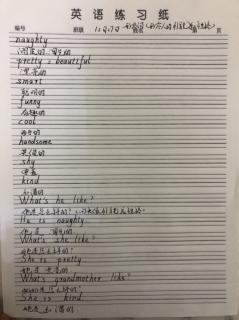 英语练习纸
编号 班级 12月17日 姓名 第 页
naughty
淘气的、调皮的
pretty = beautiful
漂亮的
smart
聪明的
funny
有趣的
cool
酷的
handsome
英俊的
shy
害羞
kind
和蔼的
What's he like?
他是怎么样的?
He is naughty.
他是 调皮的
What's she like?
她是怎么样的?
She is pretty
她是 漂亮的
What's grandmother like?
She is kind
她是 和蔼的